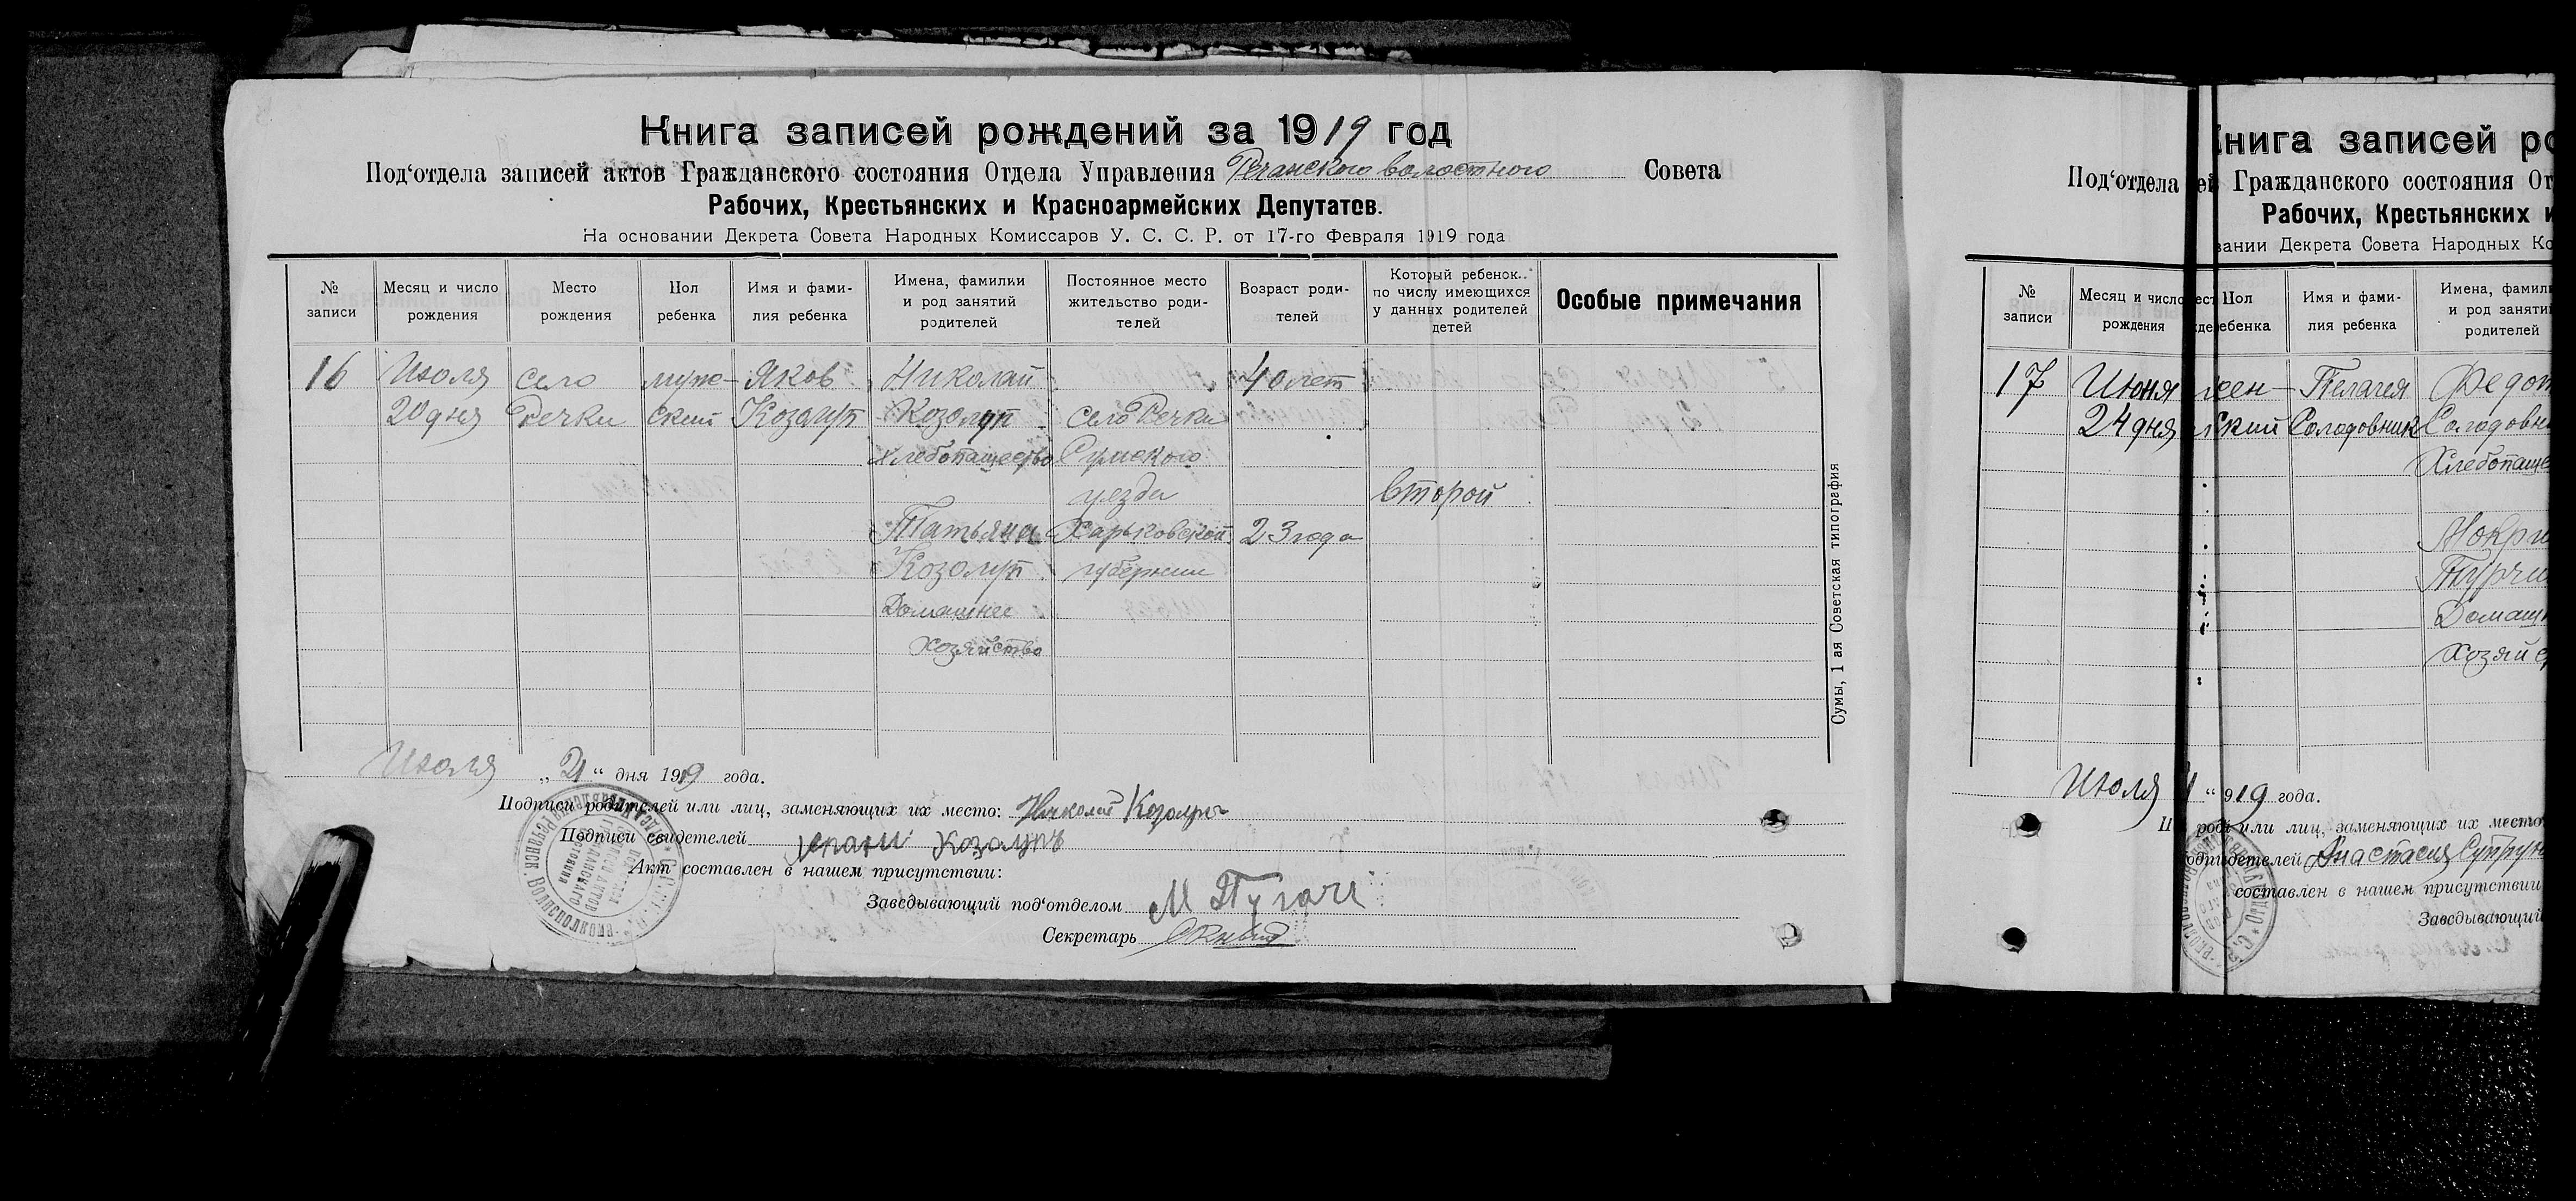 Книга записей рождений за 1919 год
Под‘отдела записей актов Гражданского состояния Отдела Управления Речанского волостного Совета
Рабочих, Крестьянских и Красноармейских Депутатов.
На основании Декрета Совета Народных Комиссаров У. С. С. Р. от 17-го Февраля 1919 года
№ записи
Месяц и число рождения
Место рождения
Пол ребенка
Имя и фами-
лия ребенка
Имена, фамилии
и род занятий
родителей
Постоянное место
жительство роди-
телей
Возраст роди-
телей
Который ребенок
по числу имеющихся
у данных родителей
детей
Особые примечания
16
Июля
20 дня
село
Речки
муж-
ский
Яков
Козолуп
Николай
Козолуп
хлебопашество
Татьяна
Козолуп
Домашнее
хозяйство
село Речки
Сумского
уезда
Харьковской
губернии
40 лет
23 года
второй
Сумы, 1 ая Советская типография
Июля „21“ дня 1919 года.
Подписи родителей или лиц, заменяющих их место: Николай Козолуп
Подписи свидетелей Козолупъ
Акт составлен в нашем присутствии:
Заведывающий под‘отделом М Пугач
Секретарь
нига записей ро
Под‘отдела ей Гражданского состояния От
Рабочих, Крестьянских и
вании Декрета Совета Народных Ко
№ записи
Месяц и число
рождения
Пол
ебенка
Имя и фами-
лия ребенка
Имена, фамили
и род заняти
родителей
17
Июня
24 дня
жен-
ский
Пелагея
Солодовник
Федот
Солодовн
Хлебопаше
Домашн
хозяйс
Июля 919 года.
или лиц, заменяющих их место
детелей Анастасия Супрун
составлен в нашем присутствии
Заведывающий